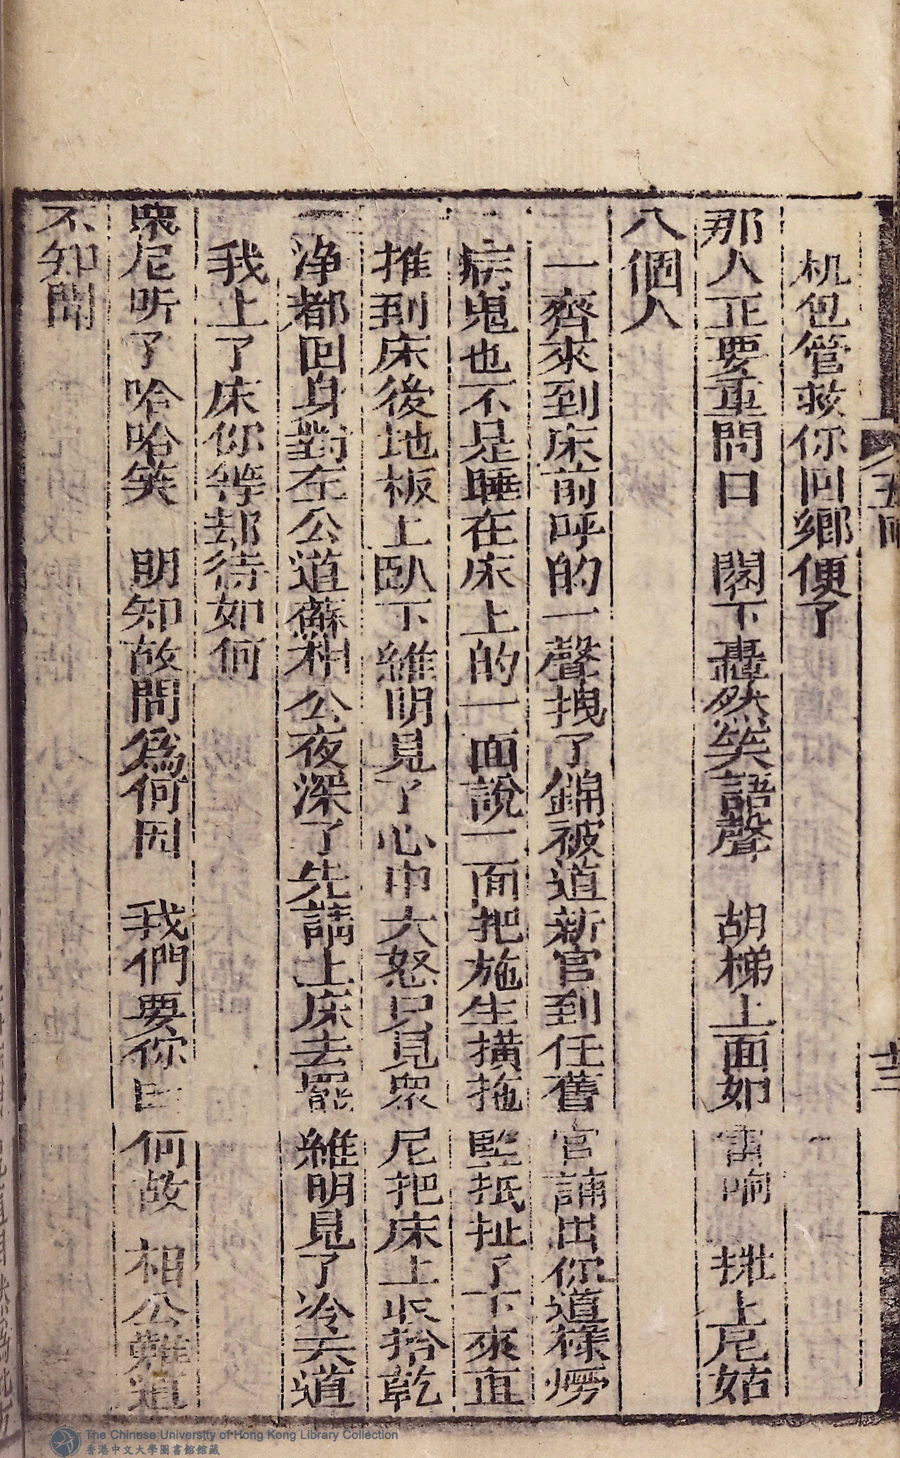 机包管救你回鄉便了
那人正要重問曰　閣下轟然笑語聲　胡梯上面如雷响　擁上尼姑
八個人
一齊來到床前呼的一聲拽了錦被道新官到任舊官請出你道樣癆
病鬼也不是睡在床上的一面說一面把施生擴拖監抵扯了下來直
推到床後地板上臥下維明見了心中大怒只見衆尼把床上收拾乾
淨都回身對左公道蘇相公夜深了先請上床去罷維明見了冷笑道
我上了床你等却待如何
衆尼听了哈哈笑　明知故問爲何因　我們要你因何故　相公難道
不知聞
廿三
The Chinese University of Hong Kong Library Collection
香港中文大學圖書館館藏